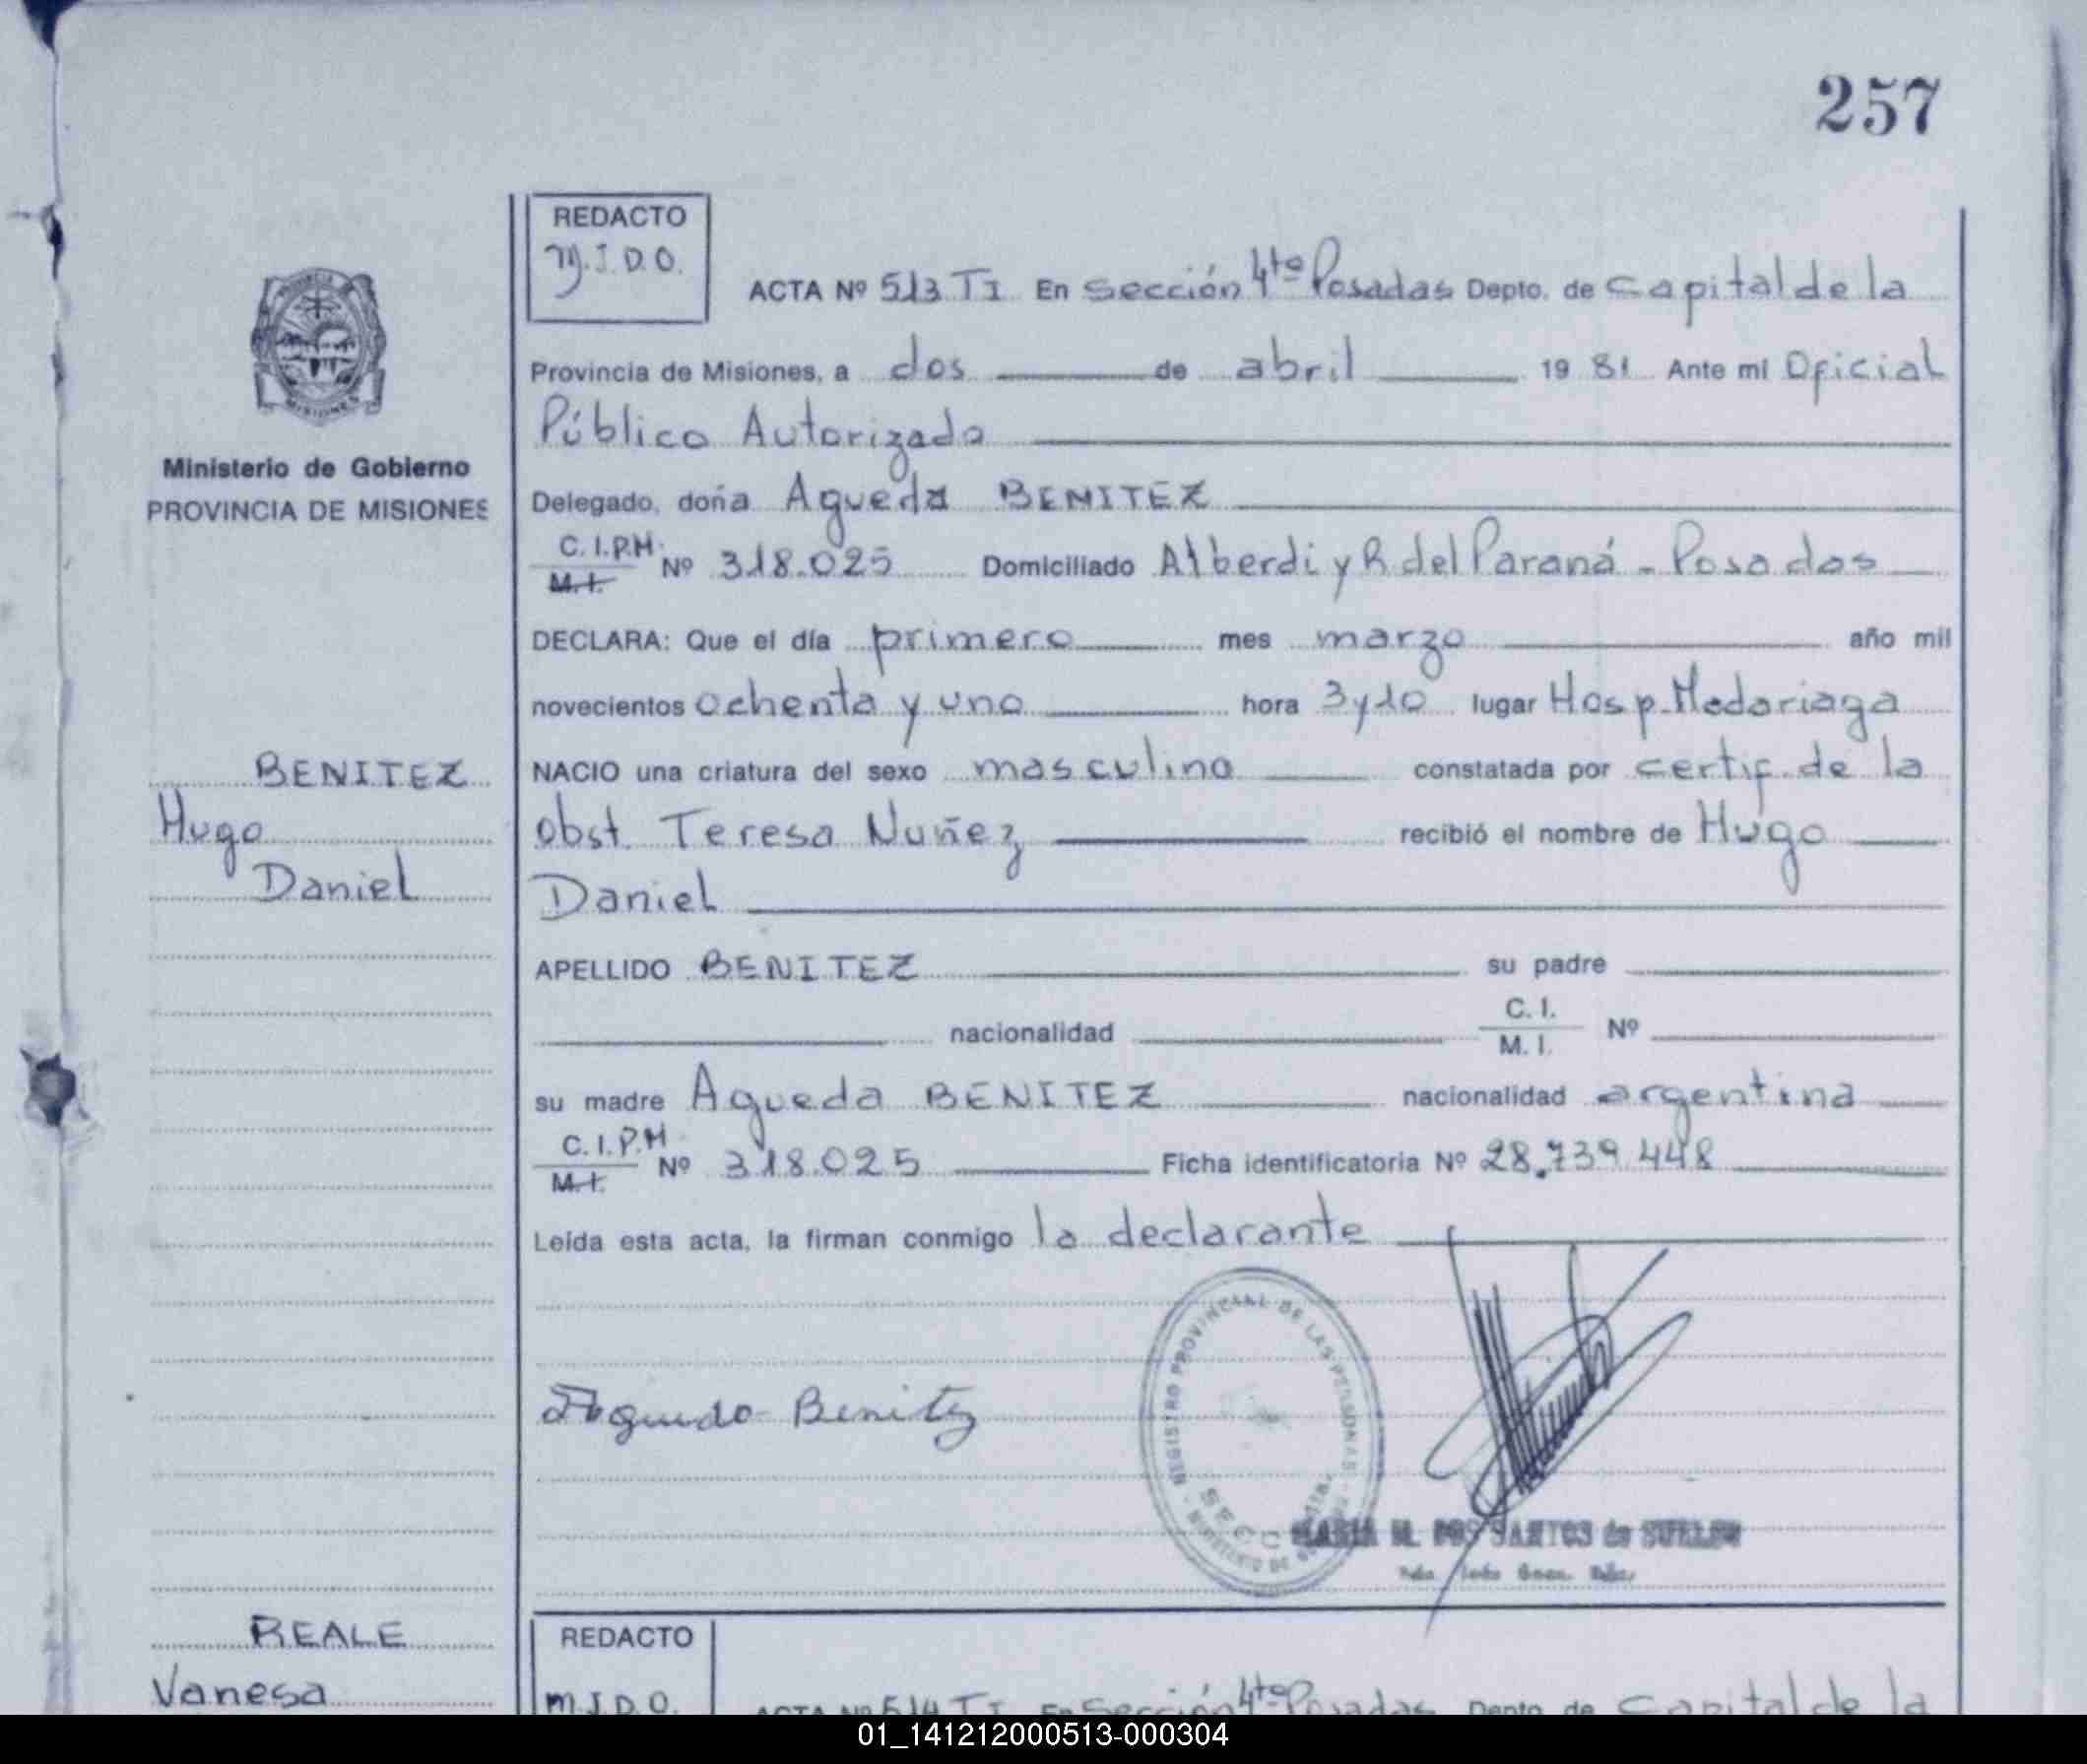 257
REDACTO
M.I.D.O.
ACTA Nº 513 TI En Sección 4ta Posadas Depto. de Capital de la
Provincia de Misiones, a dos de abril 19 81 Ante mi Oficial
Público Autorizado
Ministerio de Gobierno
PROVINCIA DE MISIONES
Delegado, doña Agueda BENITEZ
C.I.P.M. M.I. Nº 318.025 Domiciliado Alberdi y R del Paraná - Posadas
DECLARA: Que el día primero mes marzo año mil
novecientos ochenta y uno hora 3 y 10 lugar Hosp. Madariaga
BENITEZ
Hugo
Daniel
NACIO una criatura del sexo masculino constatada por certif. de la
obst. Teresa Nuñez recibió el nombre de Hugo
Daniel
APELLIDO BENITEZ su padre
nacionalidad C.I. M.I. Nº
su madre Agueda BENITEZ nacionalidad argentina
C.I.P.M. M.I. Nº 318.025 Ficha identificatoria Nº 28.739.448
Leída esta acta, la firman conmigo la declarante
Agueda Benitez
REGISTRO PROVINCIAL DE LAS PERSONAS
MARIA M. DOS SANTOS de
REALE
Vanesa
REDACTO
M.I.D.O.
ACTA Nº 514 TI En Sección 4ta Posadas Depto de Capital de la
01_141212000513-000304